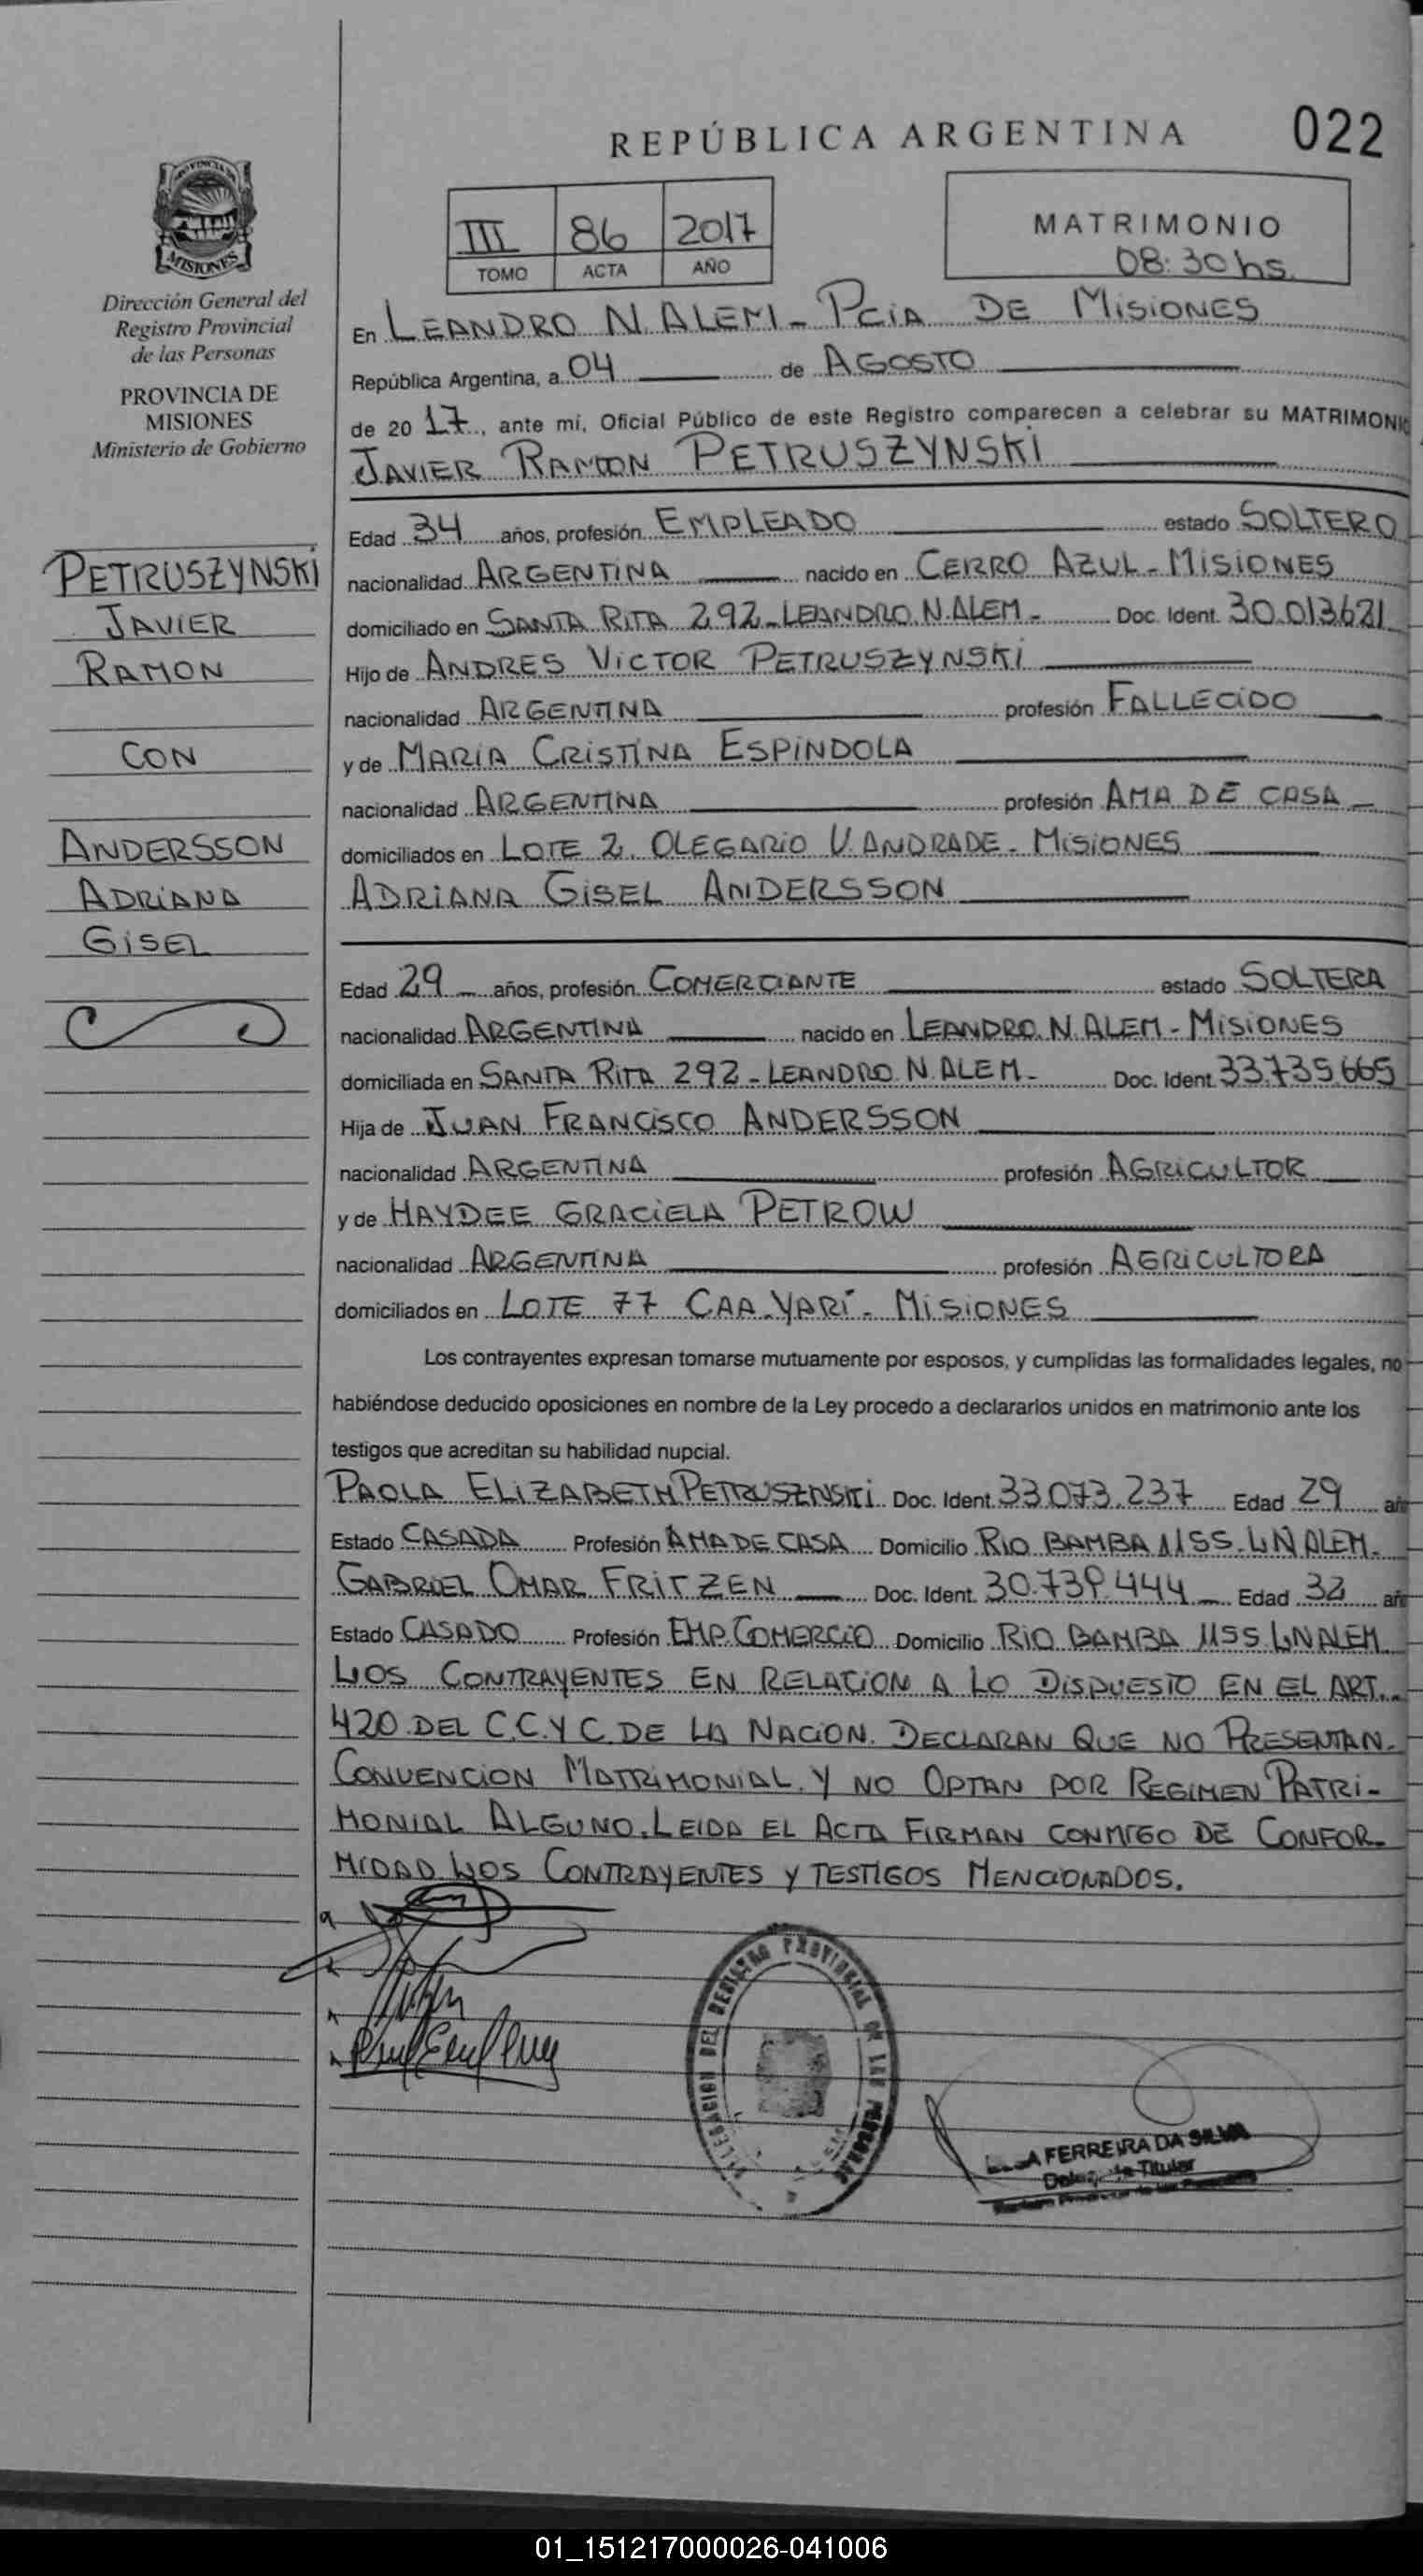 REPÚBLICA ARGENTINA 022
PROVINCIA DE
MISIONES
Dirección General del
Registro Provincial
de las Personas
PROVINCIA DE
MISIONES
Ministerio de Gobierno
III 86 2017
TOMO ACTA AÑO
MATRIMONIO
08:30 hs.
En LEANDRO N. ALEM - PCIA DE MISIONES
República Argentina, a 04 de AGOSTO
de 2017, ante mí, Oficial Público de este Registro comparecen a celebrar su MATRIMONIO
JAVIER RAMON PETRUSZYNSKI
Edad 34 años, profesión EMPLEADO estado SOLTERO
nacionalidad ARGENTINA nacido en CERRO AZUL - MISIONES
domiciliado en SANTA RITA 292 - LEANDRO N. ALEM - Doc. Ident. 30.013621
Hijo de ANDRES VICTOR PETRUSZYNSKI
nacionalidad ARGENTINA profesión FALLECIDO
y de MARIA CRISTINA ESPINDOLA
nacionalidad ARGENTINA profesión AMA DE CASA
domiciliados en LOTE 2. OLEGARIO V. ANDRADE - MISIONES
ADRIANA GISEL ANDERSSON
PETRUSZYNSKI
JAVIER
RAMON
CON
ANDERSSON
ADRIANA
GISEL
Edad 29 años, profesión COMERCIANTE estado SOLTERA
nacionalidad ARGENTINA nacido en LEANDRO N. ALEM - MISIONES
domiciliada en SANTA RITA 292 - LEANDRO N. ALEM - Doc. Ident. 33.735.665
Hija de JUAN FRANCISCO ANDERSSON
nacionalidad ARGENTINA profesión AGRICULTOR
y de HAYDEE GRACIELA PETROW
nacionalidad ARGENTINA profesión AGRICULTORA
domiciliados en LOTE 77 CAA-YARÍ - MISIONES
Los contrayentes expresan tomarse mutuamente por esposos, y cumplidas las formalidades legales, no
habiéndose deducido oposiciones en nombre de la Ley procedo a declararlos unidos en matrimonio ante los
testigos que acreditan su habilidad nupcial.
PAOLA ELIZABETH PETRUSZNSKI Doc. Ident. 33.073.237 Edad 29 añ
Estado CASADA Profesión AMA DE CASA Domicilio RIO BAMBA 1155. LN ALEM.
GABRIEL OMAR FRITZEN Doc. Ident. 30.739.444 Edad 32 añ
Estado CASADO Profesión EMP. COMERCIO Domicilio RIO BAMBA 1155 LN ALEM
LOS CONTRAYENTES EN RELACION A LO DISPUESTO EN EL ART.
420 DEL C.C.Y C. DE LA NACION. DECLARAN QUE NO PRESENTAN
CONVENCION MATRIMONIAL. Y NO OPTAN POR REGIMEN PATRI-
MONIAL ALGUNO. LEIDA EL ACTA FIRMAN CONMIGO DE CONFOR-
MIDAD LOS CONTRAYENTES Y TESTIGOS MENCIONADOS.
DELEGACION DEL REGISTRO PROVINCIAL DE LAS PERSONAS
FERREIRA DA SILVA
Titular
01_151217000026-041006